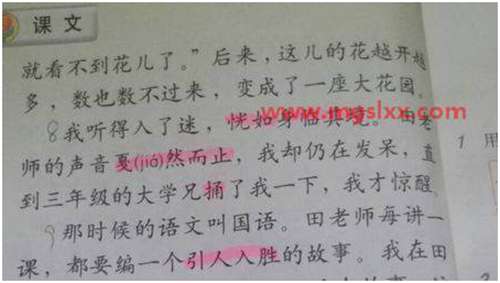 课文
就看不到花儿了。”后来，这儿的花越开越
多，数也数不过来，变成了一座大花园。
8我听得入了迷，恍如身临其境。田老
师的声音戛(jiá)然而止，我却仍在发呆，直
到三年级的大学兄捅了我一下，我才惊醒。
9那时候的语文叫国语。田老师每讲一
课，都要编一个引人入胜的故事。我在田
1 用